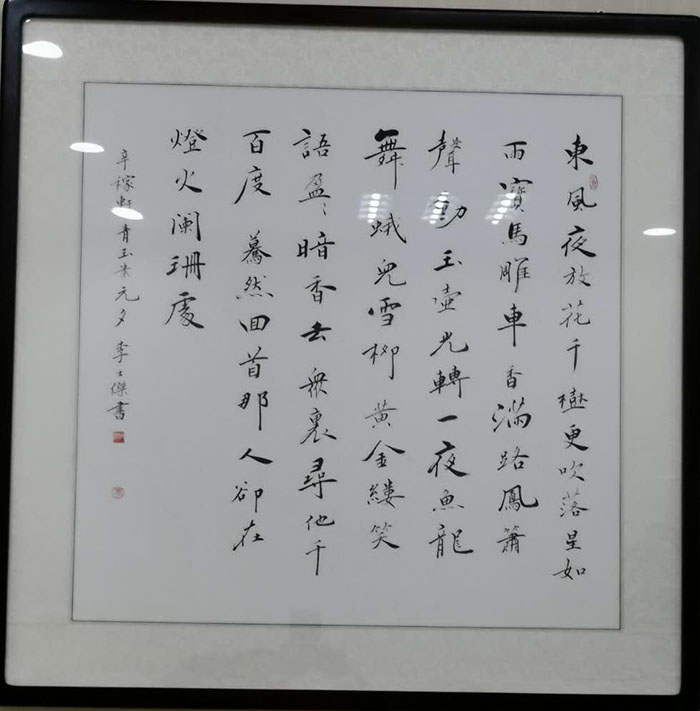 東風夜放花千樹更吹落星如
雨寶馬雕車香滿路鳳簫
聲動玉壺光轉一夜魚龍
舞蛾兒雪柳黄金縷笑
語盈〻暗香去衆裏尋他千
百度驀然回首那人卻在
燈火闌珊處
辛稼軒青玉案元夕李士傑書